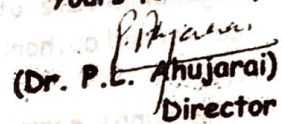 (Dr. P.L. Ahujarai)
Director